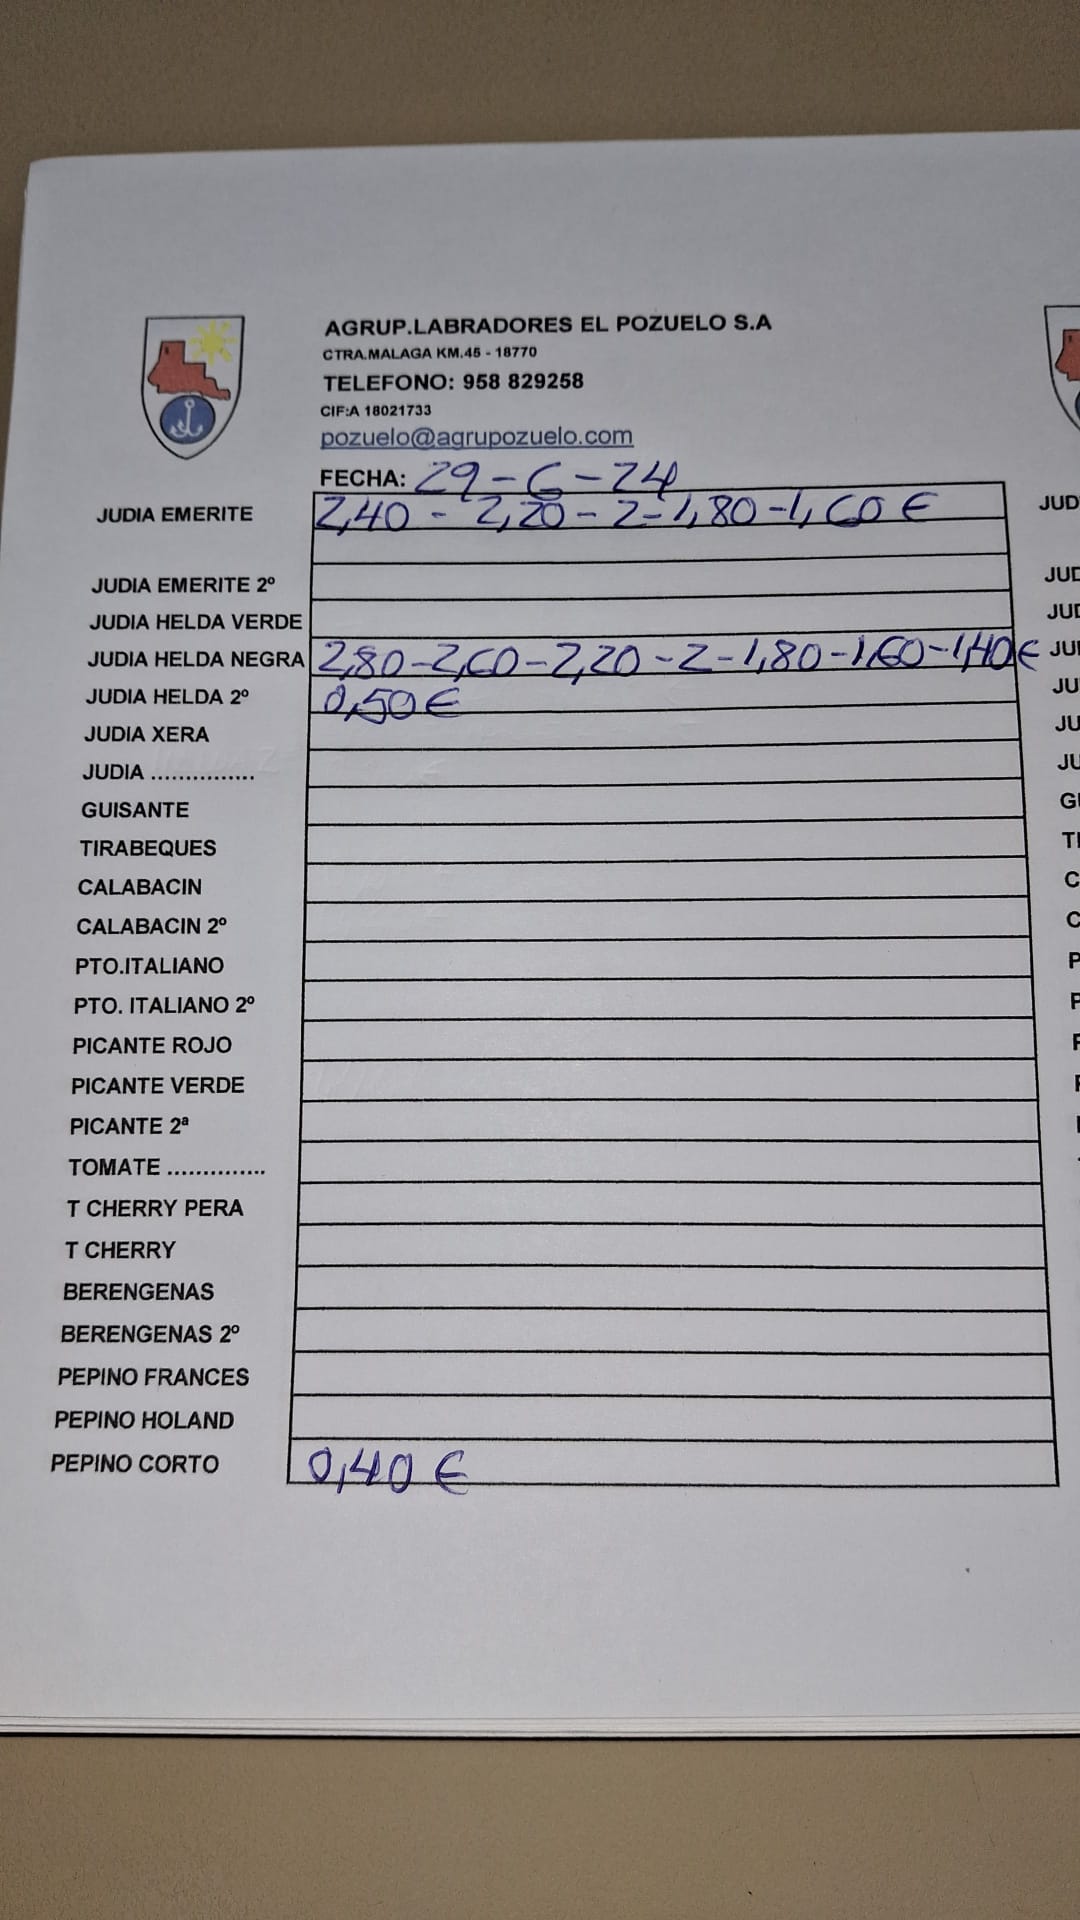 AGRUP.LABRADORES EL POZUELO S.A
CTRA.MALAGA KM.45 - 18770
TELEFONO: 958 829258
CIF:A 18021733
pozuelo@agrupozuelo.com
FECHA: 29-6-24
JUDIA EMERITE 2,40 - 2,20 - 2 - 1,80 - 1,60 €
JUDIA EMERITE 2º
JUDIA HELDA VERDE
JUDIA HELDA NEGRA 2,80 - 2,60 - 2,20 - 2 - 1,80 - 1,60 - 1,40 €
JUDIA HELDA 2º 0,50 €
JUDIA XERA
JUDIA ...............
GUISANTE
TIRABEQUES
CALABACIN
CALABACIN 2º
PTO.ITALIANO
PTO. ITALIANO 2º
PICANTE ROJO
PICANTE VERDE
PICANTE 2ª
TOMATE ..............
T CHERRY PERA
T CHERRY
BERENGENAS
BERENGENAS 2º
PEPINO FRANCES
PEPINO HOLAND
PEPINO CORTO 0,40 €